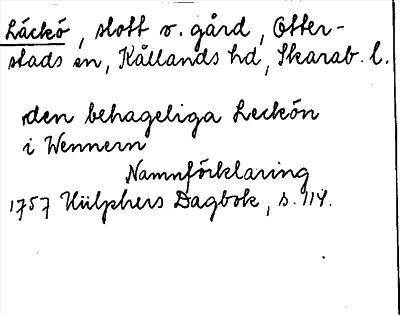 Läckö, slott o. gård, Otter-
stads sn, Kållands hd, Skarab. l.
den behageliga Leckön
i Wennern
Namnförklaring
1757 Hülphers Dagbok, s. 114.